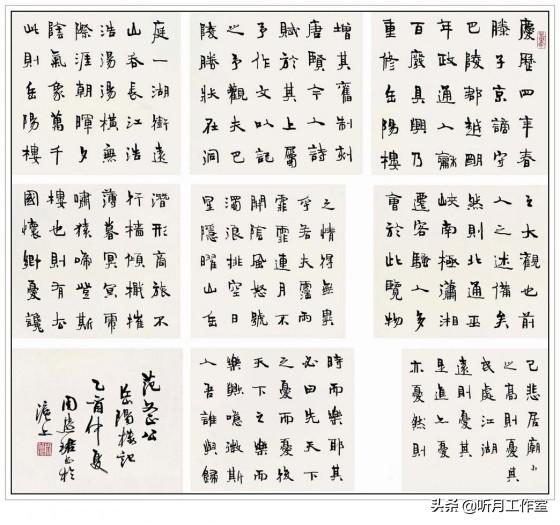 慶歷四年春
滕子京謫守
巴陵郡越明
年政通人龢
百廢具興乃
重修岳陽樓
增其舊制刻
唐賢今人詩
賦於其上屬
予作文以記
之予觀夫巴
陵勝狀在洞
庭一湖銜遠
山吞長江浩
浩湯湯橫無
際涯朝暉夕
陰氣象萬千
此則岳陽樓
之大觀也前
人之述備矣
然則北通巫
峽南極瀟湘
遷客騷人多
會於此覽物
之情得無異
乎若夫霪雨
霏霏連月不
開陰風怒號
濁浪排空日
星隱曜山岳
潛形商旅不
行檣傾楫摧
薄暮冥冥虎
嘯猿啼登斯
樓也則有去
國懷鄉憂讒
己悲居廟
之高則憂其
民處江湖
遠則憂其
是進憂
亦憂然則
時而樂耶其
必曰先天下
之憂而憂後
天下之樂而
樂歟噫微斯
人吾誰與歸
范文正公
岳陽樓記
乙酉仲夏
周慧珺書於
滬上
头条 @听月工作室